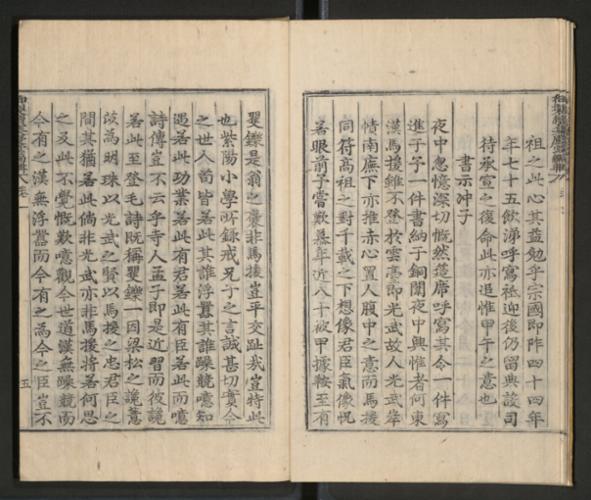 祖之此心其益勉乎宗國即阼四十四年
年七十五飲涕呼寫祗迎後仍留與設司
待承宣之復命此亦追惟甲午之意也
書示冲子
夜中忽憶深切慨然蓬席呼寫其令一件寫
進子予一件書納子銅闈夜中興惟者何東
漢馬援雖不登於雲臺即光武故人光武岸
幘南廡下亦推赤心置人腹中之意而馬援
同符高祖之對千載之下想像君臣氣像怳
若眼前予嘗歎慕年近八十被甲據鞍至有
矍鑠是翁之褒非馬援豈平交趾我豈特此
也紫陽小學所錄戒兄子之言誠甚切實今
之世人苟皆若此其誰浮囂其誰躁競噫知
遇若此功業若此有君若此有臣若此而噫
詩傳豈不云乎寺人孟子即是近習而彼譖
若此至登毛詩既稱矍鑠一因梁松之譖薏
苡為明珠以光武之賢以馬援之忠君臣之
間其猶若此倘非光武亦非馬援將若何思
之及此不覺慨歎噫觀今世道漢無躁競而
今有之漢無浮囂而今有之為今之臣豈不
五